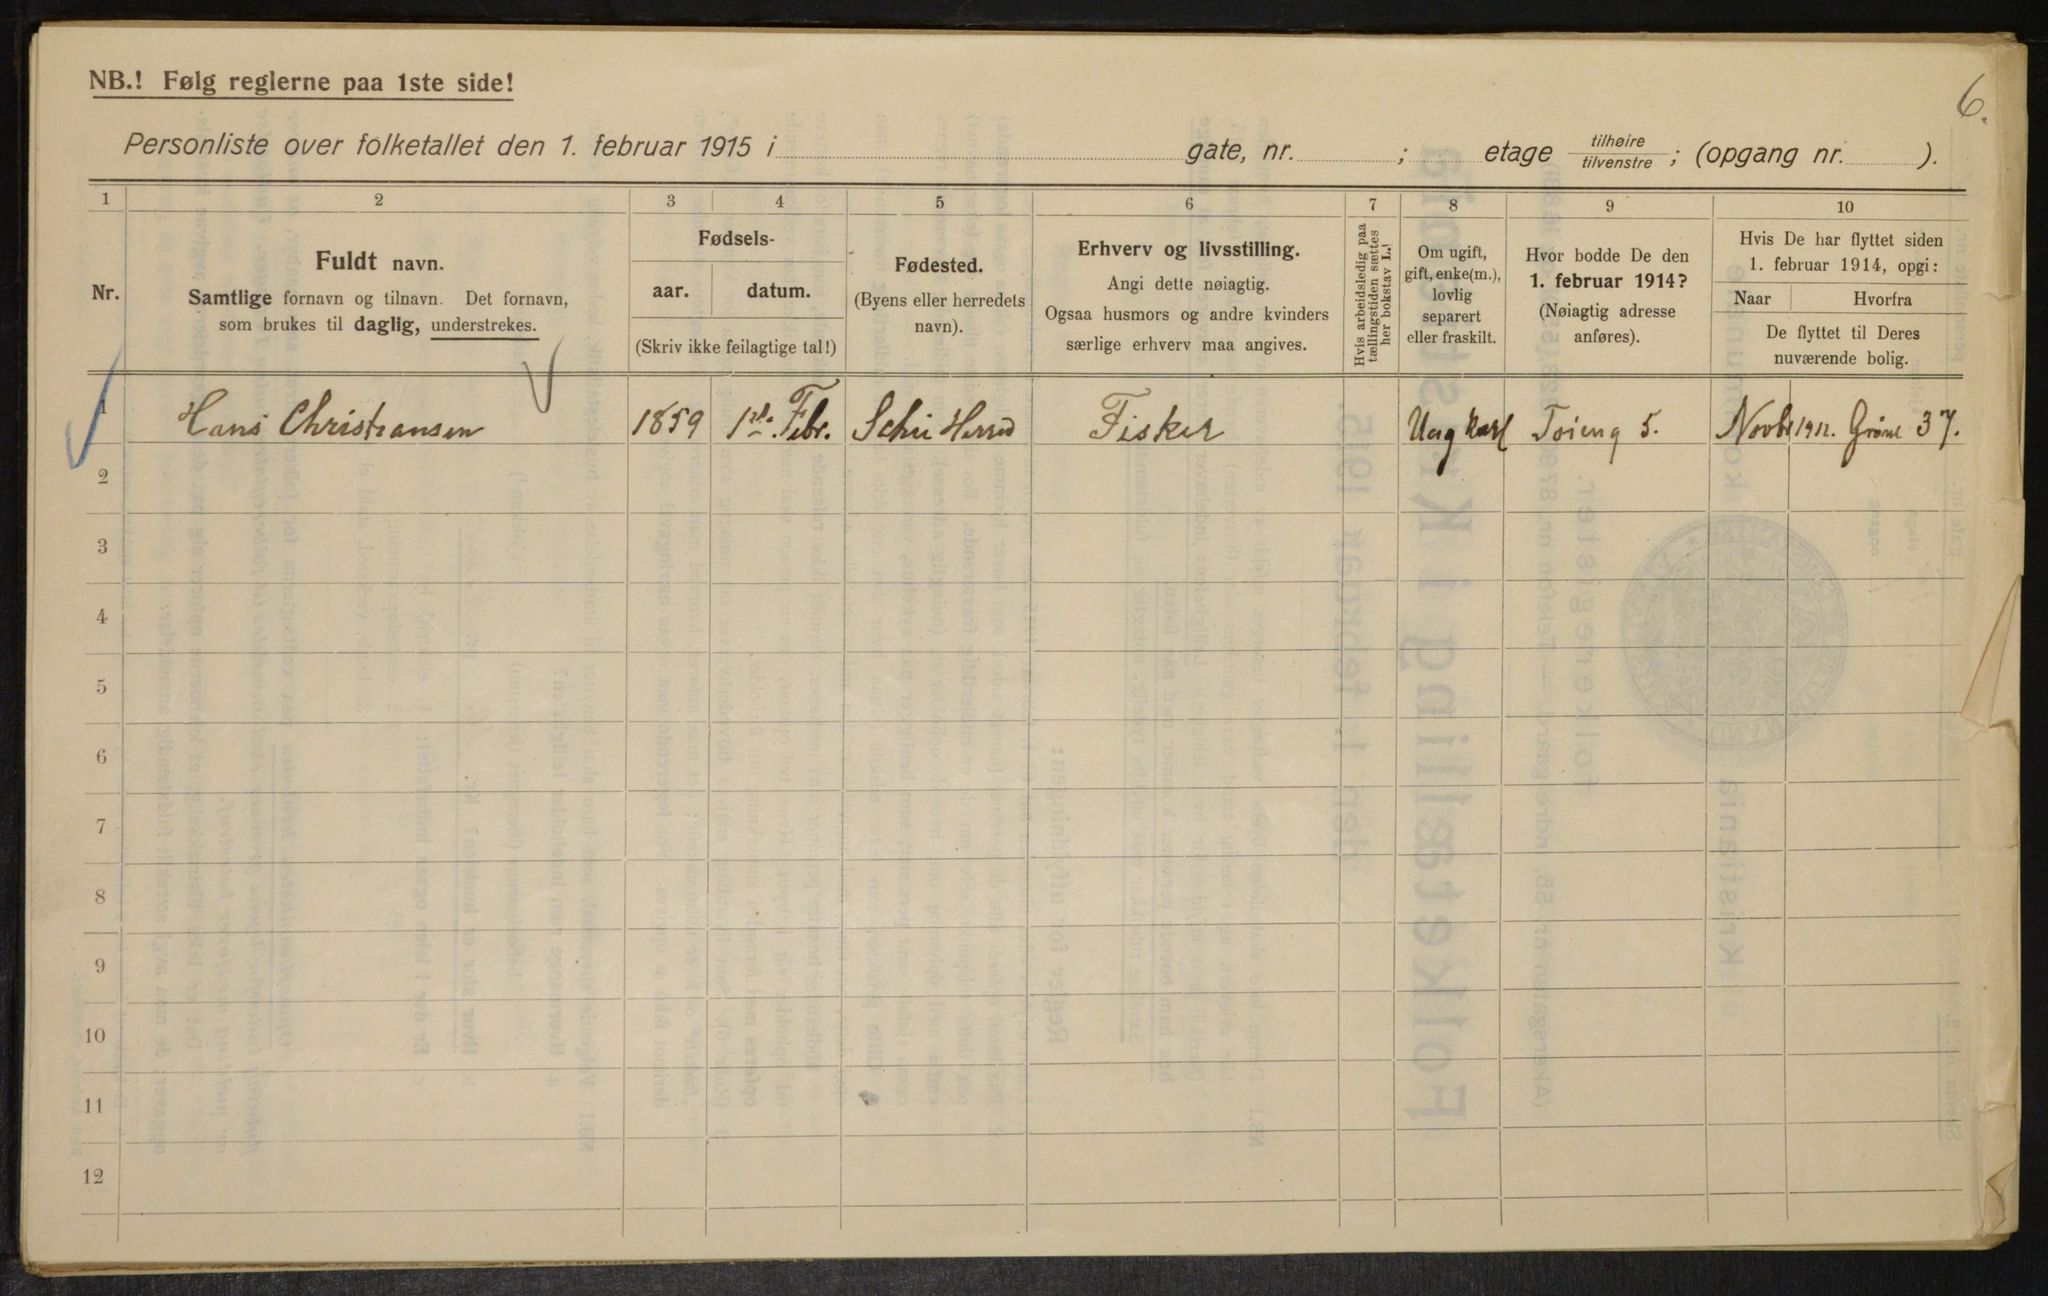 NB.! Følg reglerne paa 1ste side!
6.
Personliste over folketallet den 1. februar 1915 i gate, nr. ; etage tilhøire tilvenstre ; (opgang nr. ).
1 2 3 4 5 6 7 8 9 10
Nr.
Fuldt navn.
Samtlige fornavn og tilnavn. Det fornavn,
som brukes til daglig, understrekes.
Fødsels-
aar. datum.
(Skriv ikke feilagtige tal!)
Fødested.
(Byens eller herredets
navn).
Erhverv og livsstilling.
Angi dette nøiagtig.
Ogsaa husmors og andre kvinders
særlige erhverv maa angives.
Hvis arbeidsledig paa
tællingstiden sættes
her bokstav L.!
Om ugift,
gift, enke(m.),
lovlig
separert
eller fraskilt.
Hvor bodde De den
1. februar 1914?
(Nøiagtig adresse
anføres).
Hvis De har flyttet siden
1. februar 1914, opgi:
Naar Hvorfra
De flyttet til Deres
nuværende bolig.
1 Hans Christiansen 1859 1ste Febr. Herred Fisker Ung Karl Tøieng 5. Novbr 1912. Grønl 37.
2
3
4
5
6
7
8
9
10
11
12